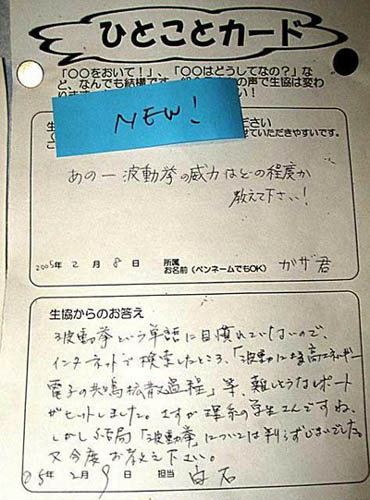 ひとことカード
「〇〇をおいて！」、「〇〇はどうしてなの？」な
ど、なんでも結構です の声で生協は変わ
ります い！
NEW!
生 ださい
せていただきやすいです。
あのー波動拳の威力はどの程度か
教えて下さい！
2005年 2月 8日 所属
お名前(ペンネームでもOK) ガザ君
生協からのお答え
波動拳という単語に目慣れていないので、
インターネットで検索したところ、「波動による高エネルギー
電子の共鳴拡散過程」等、難しそうなレポート
がヒットしました。さすが理系の学生さんですね。
しかし結局「波動拳」については判らずじまいでした。
又今度お教え下さい。
05年 2月 9日 担当 白石